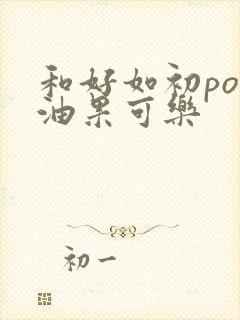 和好如初po
油果可樂
初一